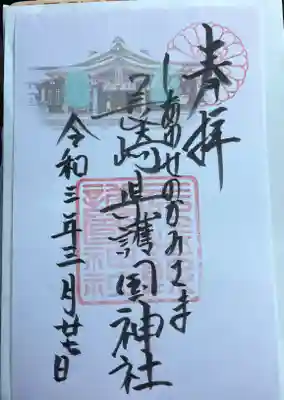 奉拝
しあわせのかみさま
宮崎県護国神社
令和三年三月廿七日